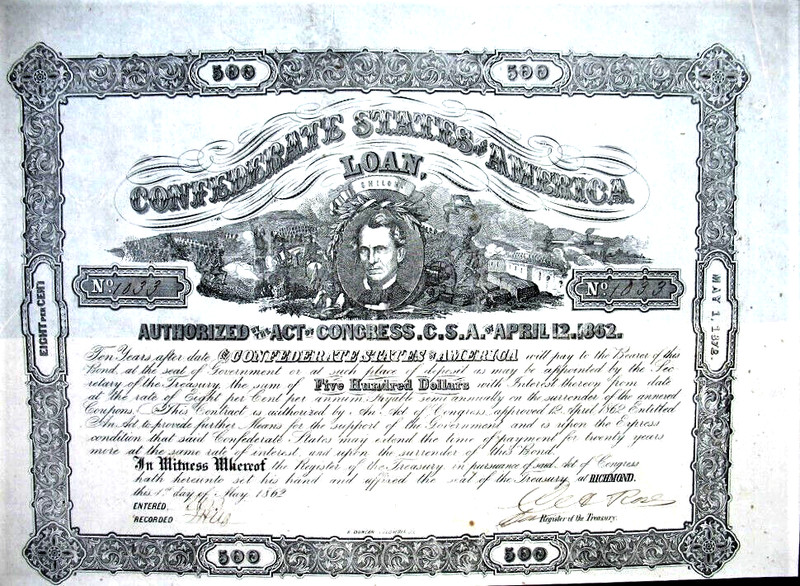 500 500
CONFEDERATE STATES OF AMERICA
LOAN,
SHILOH
No. 1033 No. 1033
EIGHT PER CENT
MAY 1. 1872.
AUTHORIZED BY THE ACT OF CONGRESS. C.S.A. OF APRIL 12. 1862.
Ten Years after date the CONFEDERATE STATES OF AMERICA will pay to the Bearer of this
Bond, at the seat of Government or at such place of deposit as may be appointed by the Sec
retary of the Treasury, the sum of Five Hundred Dollars with Interest thereon from date
at the rate of Eight per Cent per annum payable semi annually on the surrender of the annexed
Coupons. This Contract is authorized by An Act of Congress, approved 12 April 1862 Entitled
An Act to provide further Means for the support of the Government and is upon the Express
condition that said Confederate States may extend the time of payment for twenty years
more at the same rate of interest, and upon the surrender of this Bond.
In Witness Whereof the Register of the Treasury in pursuance of said Act of Congress
hath hereunto set his hand and affixed the seal of the Treasury, at RICHMOND.
this 1st day of May 1862
ENTERED
RECORDED
Register of the Treasury.
500 500